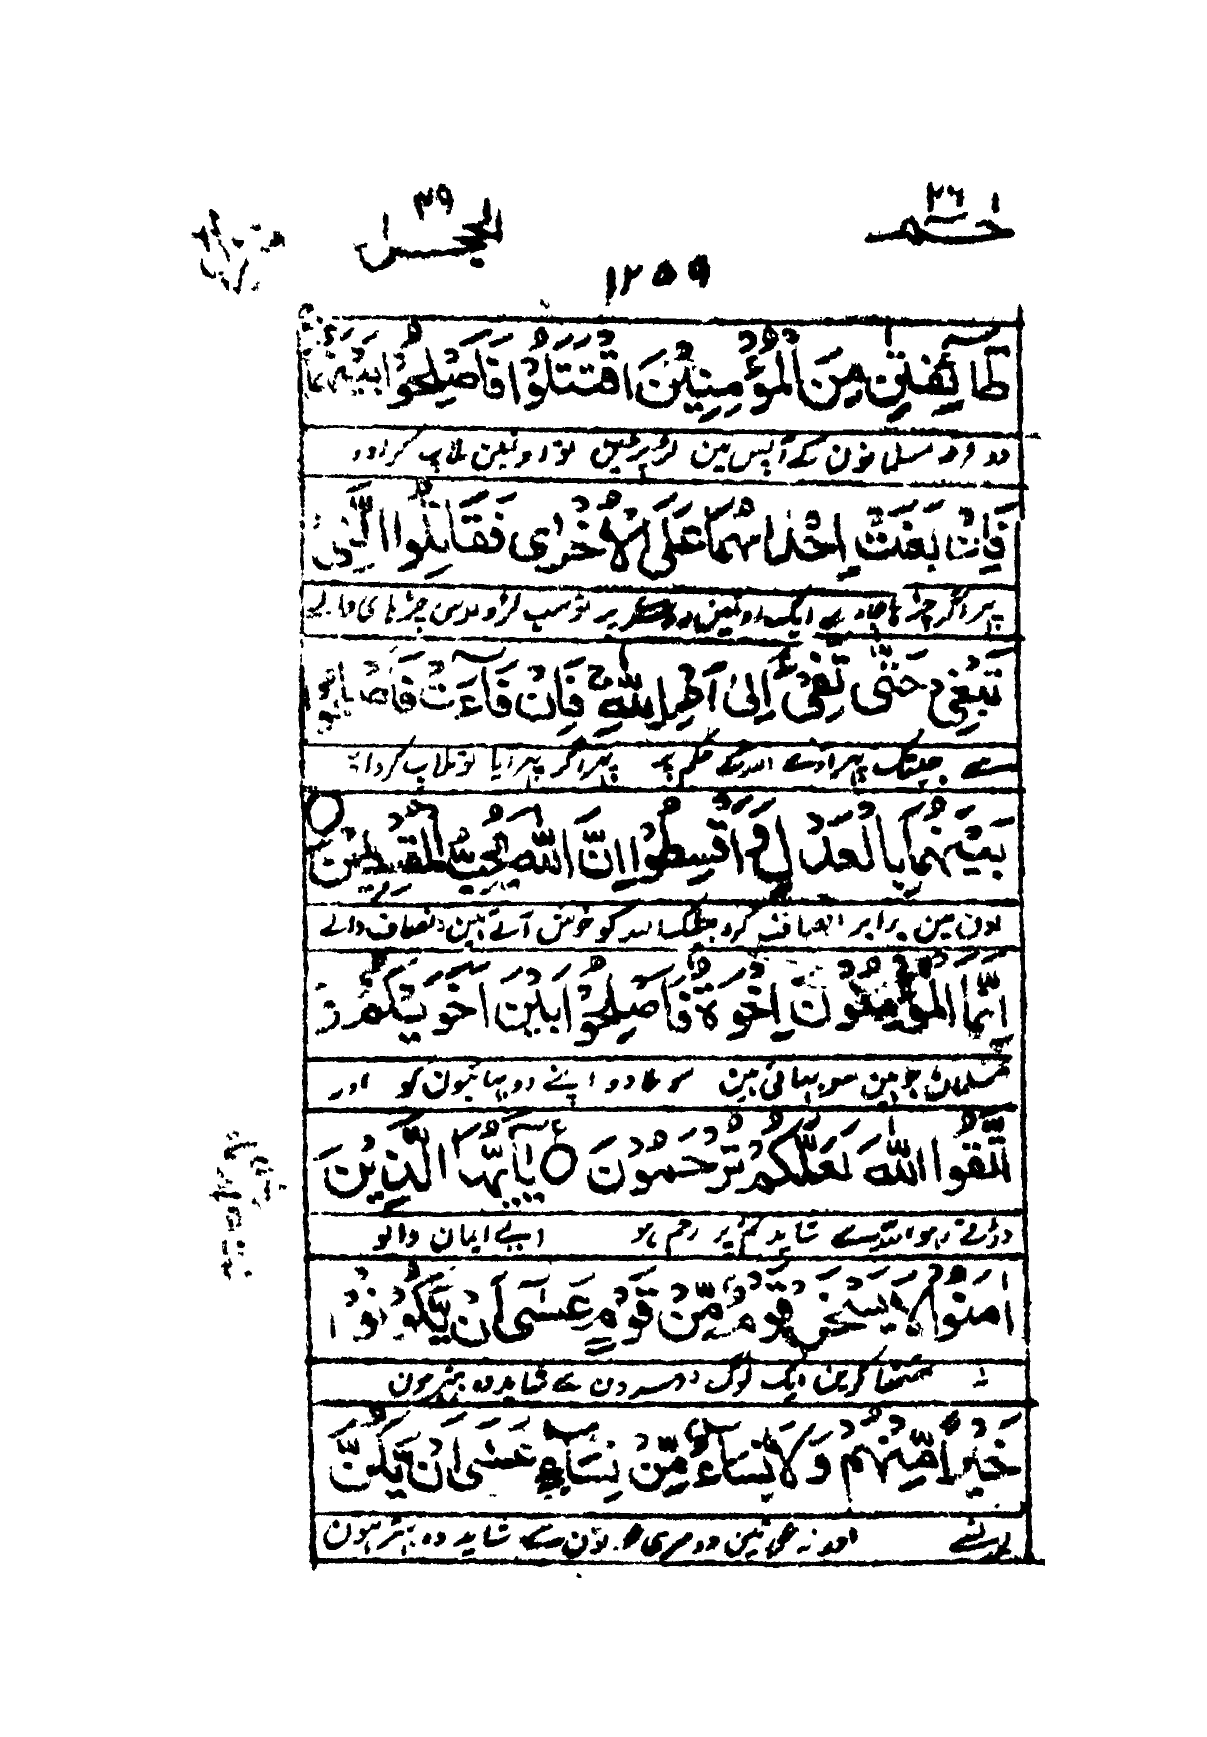 ٢٦ ٤٩
حٰـم الحجرٰت
١٢٥٩
طَآئِفَتٰنِ مِنَ الْمُؤْمِنِيْنَ اقْتَتَلُوْا فَاَصْلِحُوْا بَيْنَهُمَا
دو فرقہ مسلمانون کے آپس مین لڑ پڑین تو اونمین ملاپ کرادو
فَاِنْۢ بَغَتْ اِحْدٰىهُمَا عَلَى الْاُخْرٰى فَقَاتِلُوا الَّتِيْ
پہر اگر چڑہا جاوے ایک اونمین دوسری پر تو سب لڑو اس چڑہائی والے
تَبْغِيْ حَتّٰى تَفِيْٓءَ اِلٰٓى اَمْرِ اللّٰهِ ج فَاِنْ فَآءَتْ فَاَصْلِحُوْا
سے جبتک پہر آوے اللہ کے حکم پر پہر اگر پہر آیا تو ملاپ کرداؤ
بَيْنَهُمَا بِالْعَدْلِ وَاَقْسِطُوْا اِنَّ اللّٰهَ يُحِبُّ الْمُقْسِطِيْنَ ○
اون مین برابر انصاف کرو بیشک اللہ کو خوش آتے ہین انصاف والے
اِنَّمَا الْمُؤْمِنُوْنَ اِخْوَةٌ فَاَصْلِحُوْا بَيْنَ اَخَوَيْكُمْ وَ
مسلمان جو ہین سو بہائی ہین سو ملادو اپنے دو بہائیون کو اور
اتَّقُوا اللّٰهَ لَعَلَّكُمْ تُرْحَمُوْنَ ○ يٰٓاَيُّهَا الَّذِيْنَ
ڈرتے رہو اللہ سے شاید تم پر رحم ہو اے ایمان والو
اٰمَنُوْا لَا يَسْخَرْ قَوْمٌ مِّنْ قَوْمٍ عَسٰٓى اَنْ يَّكُوْنُوْا
نہ ٹھٹھا کرین ایک لوگ دوسرون سے شاید وہ بہتر ہون
خَيْرًا مِّنْهُمْ وَلَا نِسَآءٌ مِّنْ نِّسَآءٍ عَسٰٓى اَنْ يَّكُنَّ
اونسے اور نہ عورتین دوسری عورتون سے شاید وہ بہتر ہون